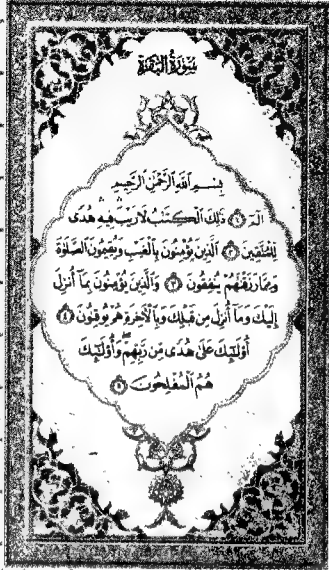 سُورَةُ الْبَقَرَةِ
بِسْمِ اللَّهِ الرَّحْمَٰنِ الرَّحِيمِ
الٓمٓ ١ ذَٰلِكَ الْكِتَٰبُ لَا رَيْبَ فِيهِ هُدًى
لِّلْمُتَّقِينَ ٢ الَّذِينَ يُؤْمِنُونَ بِالْغَيْبِ وَيُقِيمُونَ الصَّلَوٰةَ
وَمِمَّا رَزَقْنَٰهُمْ يُنفِقُونَ ٣ وَالَّذِينَ يُؤْمِنُونَ بِمَآ أُنزِلَ
إِلَيْكَ وَمَآ أُنزِلَ مِن قَبْلِكَ وَبِالْءَاخِرَةِ هُمْ يُوقِنُونَ ٤
أُو۟لَٰٓئِكَ عَلَىٰ هُدًى مِّن رَّبِّهِمْ وَأُو۟لَٰٓئِكَ
هُمُ الْمُفْلِحُونَ ٥